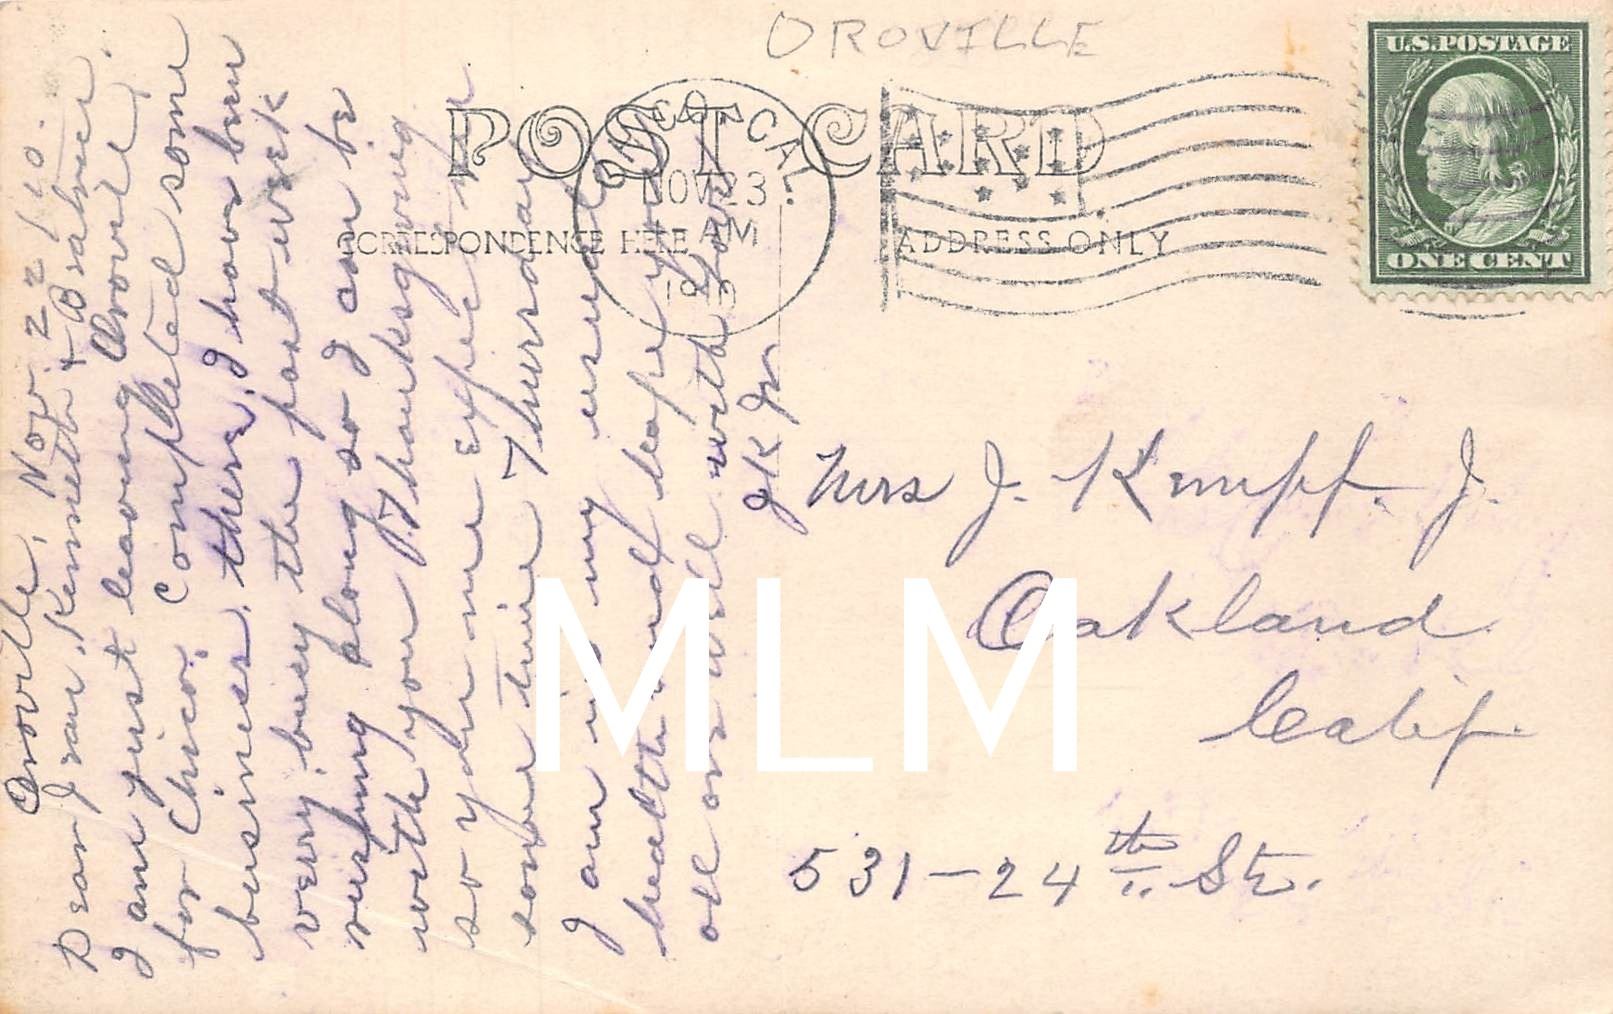 OROVILLE
U.S. POSTAGE
ONE CENT
POST CARD
CORRESPONDENCE HERE
ADDRESS ONLY
CAL.
NOV 23
AM
1910
Oroville, Nov. 22/10.
Dear Jean, Kenneth +
I am just leaving Oroville,
for Chico. Completed some
business there. I have been
very busy the past week
rushing along so I can be
with you Thanksgiving
so you me expect me
some time Thursday
I am in my usual
health and hope you
all are well with
J K Jr
Mrs J. Kempf. J.
Oakland
Calif.
531-24th St.
MLM